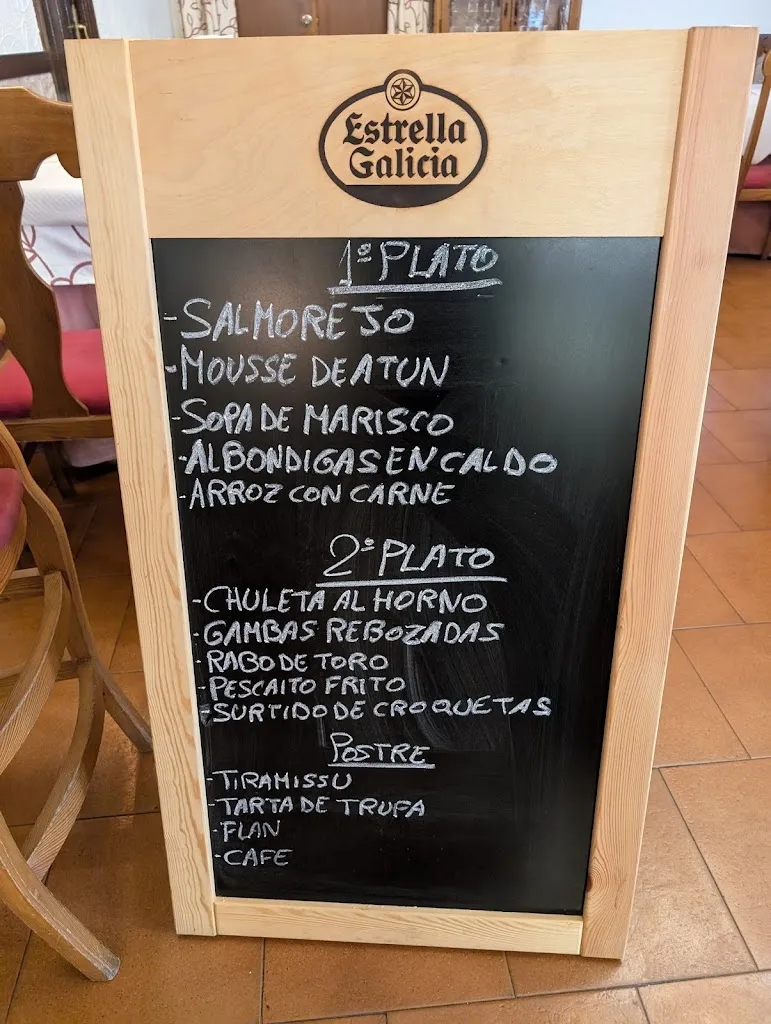 Estrella
Galicia
1º PLATO
- SALMOREJO
- MOUSSE DE ATUN
- SOPA DE MARISCO
- ALBONDIGAS EN CALDO
- ARROZ CON CARNE
2º PLATO
- CHULETA AL HORNO
- GAMBAS REBOZADAS
- RABO DE TORO
- PESCAITO FRITO
- SURTIDO DE CROQUETAS
POSTRE
- TIRAMISSU
- TARTA DE TRUFA
- FLAN
- CAFE